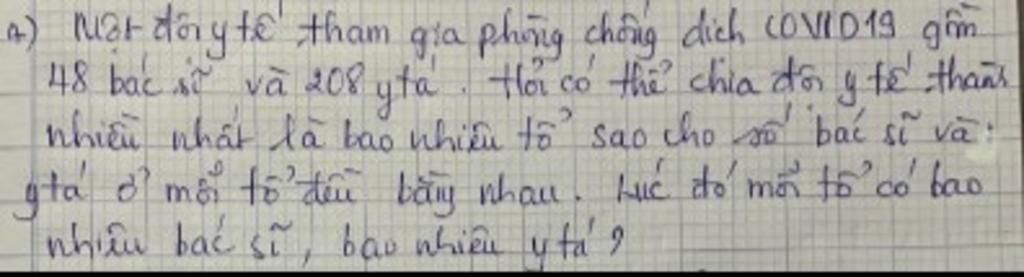 a) Một đội y tế tham gia phòng chống dịch COVID19 gồm
48 bác sĩ và 208 y tá. Hỏi có thể chia đội y tế thành
nhiều nhất là bao nhiêu tổ sao cho số bác sĩ và
y tá ở mỗi tổ đều bằng nhau. Lúc đó mỗi tổ có bao
nhiêu bác sĩ, bao nhiêu y tá?